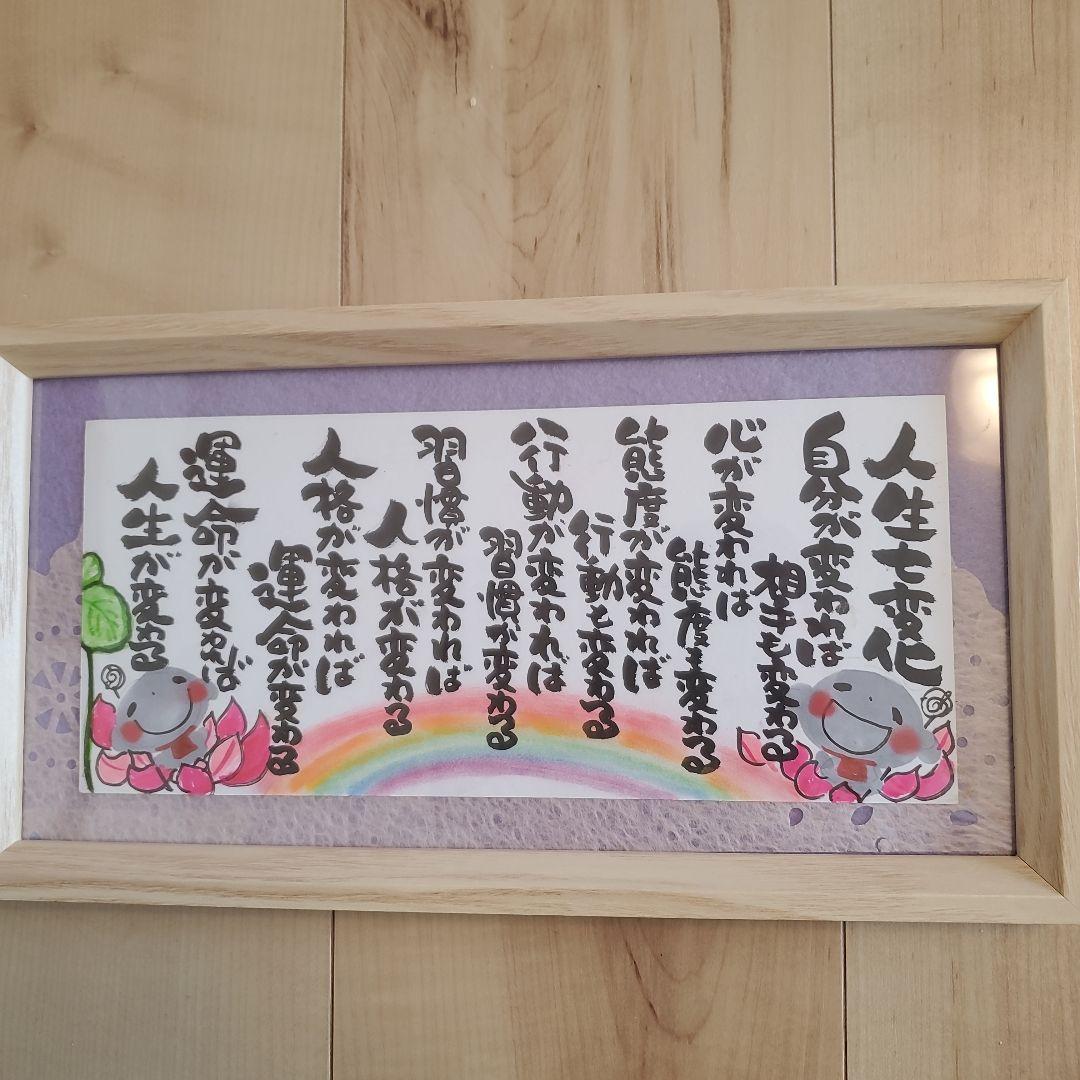 人生七変化
自分が変われば
相手も変わる
心が変われば
態度も変わる
態度が変われば
行動も変わる
行動が変われば
習慣が変わる
習慣が変われば
人格が変わる
人格が変われば
運命が変わる
運命が変われば
人生が変わる